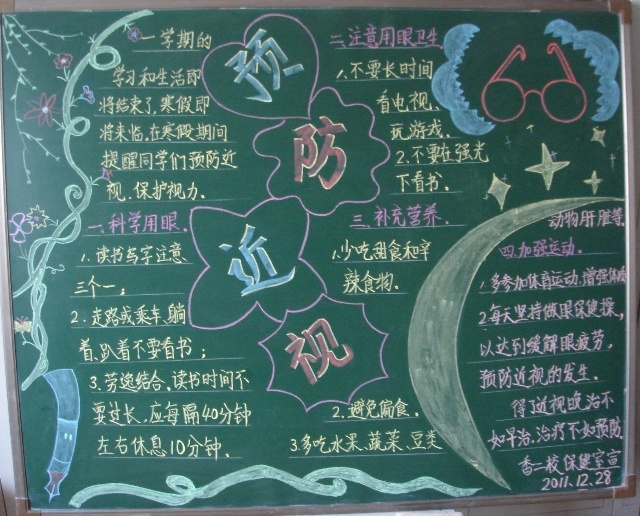 预
防
近
视
一学期的
学习和生活即
将结束了,寒假即
将来临,在寒假期间
提醒同学们预防近
视,保护视力。
一.科学用眼.
1.读书与字注意
三个一;
2.走路或乘车、躺
着、趴着不要看书;
3.劳逸结合,读书时间不
要过长,应每隔40分钟
左右休息10分钟.
二.注意用眼卫生.
1.不要长时间
看电视、
玩游戏.
2.不要在强光
下看书.
三.补充营养.
1.少吃甜食和辛
辣食物.
2.避免偏食.
3.多吃水果、蔬菜、豆类
动物肝脏等.
四.加强运动.
1.多参加体育运动,增强体质
2.每天坚持做眼保健操,
以达到缓解眼疲劳,
预防近视的发生.
得了近视晚治不
如早治,治疗不如预防.
香二校保健室宣
2011.12.28